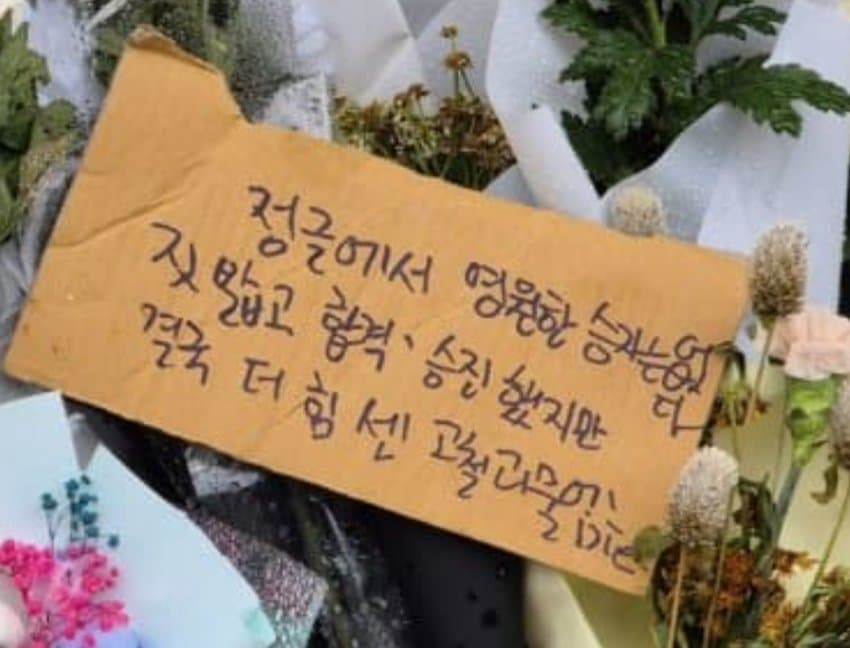 정글에서 영원한 승자는없다
짓밟고 합격、승진 했지만
결국 더 힘 센 고철괴물에